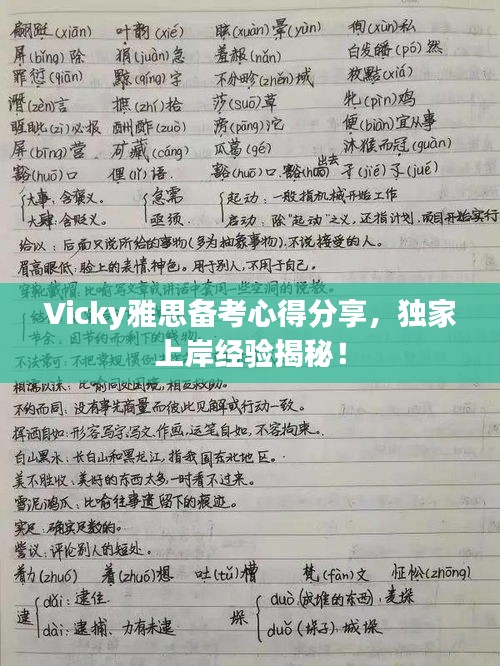 翩跹(xiān) 叶韵(xié) 眩(xuàn)晕(yùn) 徇(xùn)私
屏(bǐng)除 狷(juàn)急 羞赧(nǎn) 白发皤(pó)然
罪愆(qiān) 黥(qíng)字 不分畛(zhěn)域 狡黠(xiá)
谮(zèn)言 摭(zhí)拾 莎(suō)草 牝(pìn)鸡
睚眦(zì)必报 酬酢(zuò) 滂(pāng)沱 便(biàn)宜从事
屏(bīng)营 矿藏(cáng) 瓜葛(gé) 沐猴而冠(guàn)
豁(huō)口 俚(lǐ)语 豁(huō)口、豁(huō)出去 孑(jié)孓(jué)
大事:含褒义。 急需 起动:一般指机械开始工作
大肆:含贬义。 亟须 启动:除“起动”之义,还指计划、项目开始实行
给以:后面只说所给的事物(多为抽象事物),不说接受的人。
眉高眼低:脸上的表情、神色。用于别人,不用于自己。
Vicky雅思备考心得分享,独家
上岸经验揭秘!
不约而同:没有事先商量而彼此见解或行动一致。
挥洒自如:形容写字、写文、作画,运笔自如,不容拘束。
白山黑水:长白山和黑龙江,指我国东北地区。
美不胜收:美好的东西太多,一时看不过来。
雪泥鸿爪:比喻往事遗留下的痕迹。
实足:确实足数的。
訾议:评论别人的短处。
着力(zhuó) 着(zhuó)想 吐(tǔ)槽 梵(fàn)文 怔忪(zhōng)
逮 dǎi:逮住 垛 duò(成堆的东西):麦垛
dài:逮捕、力有未逮 duǒ(垛子):城垛